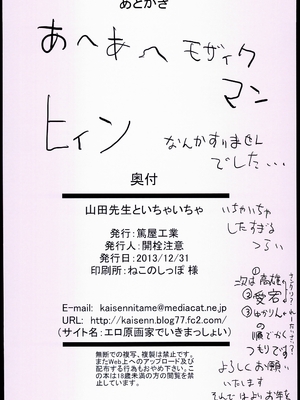 あとがき
あへあへ モザイク
マン
ヒィン
なんかすりません
でした…
奥付
山田先生といちゃいちゃ
いちゃいちゃ
したすぎる
つらい
発行：篤屋工業
発行人：開栓注意
発行日：2013/12/31
印刷所：ねこのしっぽ 様
次は①高雄
②愛宕
③ゆかりん
の
順でかく
つもりです
よろしくお願い
いたします
E-mail: kaisennitame@mediacat.ne.jp
URL: http://kaisenn.blog77.fc2.com/
（サイト名：エロ原画家でいきまっしょい）
無断での複写、複製は禁止です。
またWeb上へのアップロード及び
配布する行為もおやめ下さい。
この本は18歳未満の方の閲覧を
禁止しています。
それではよいお年を